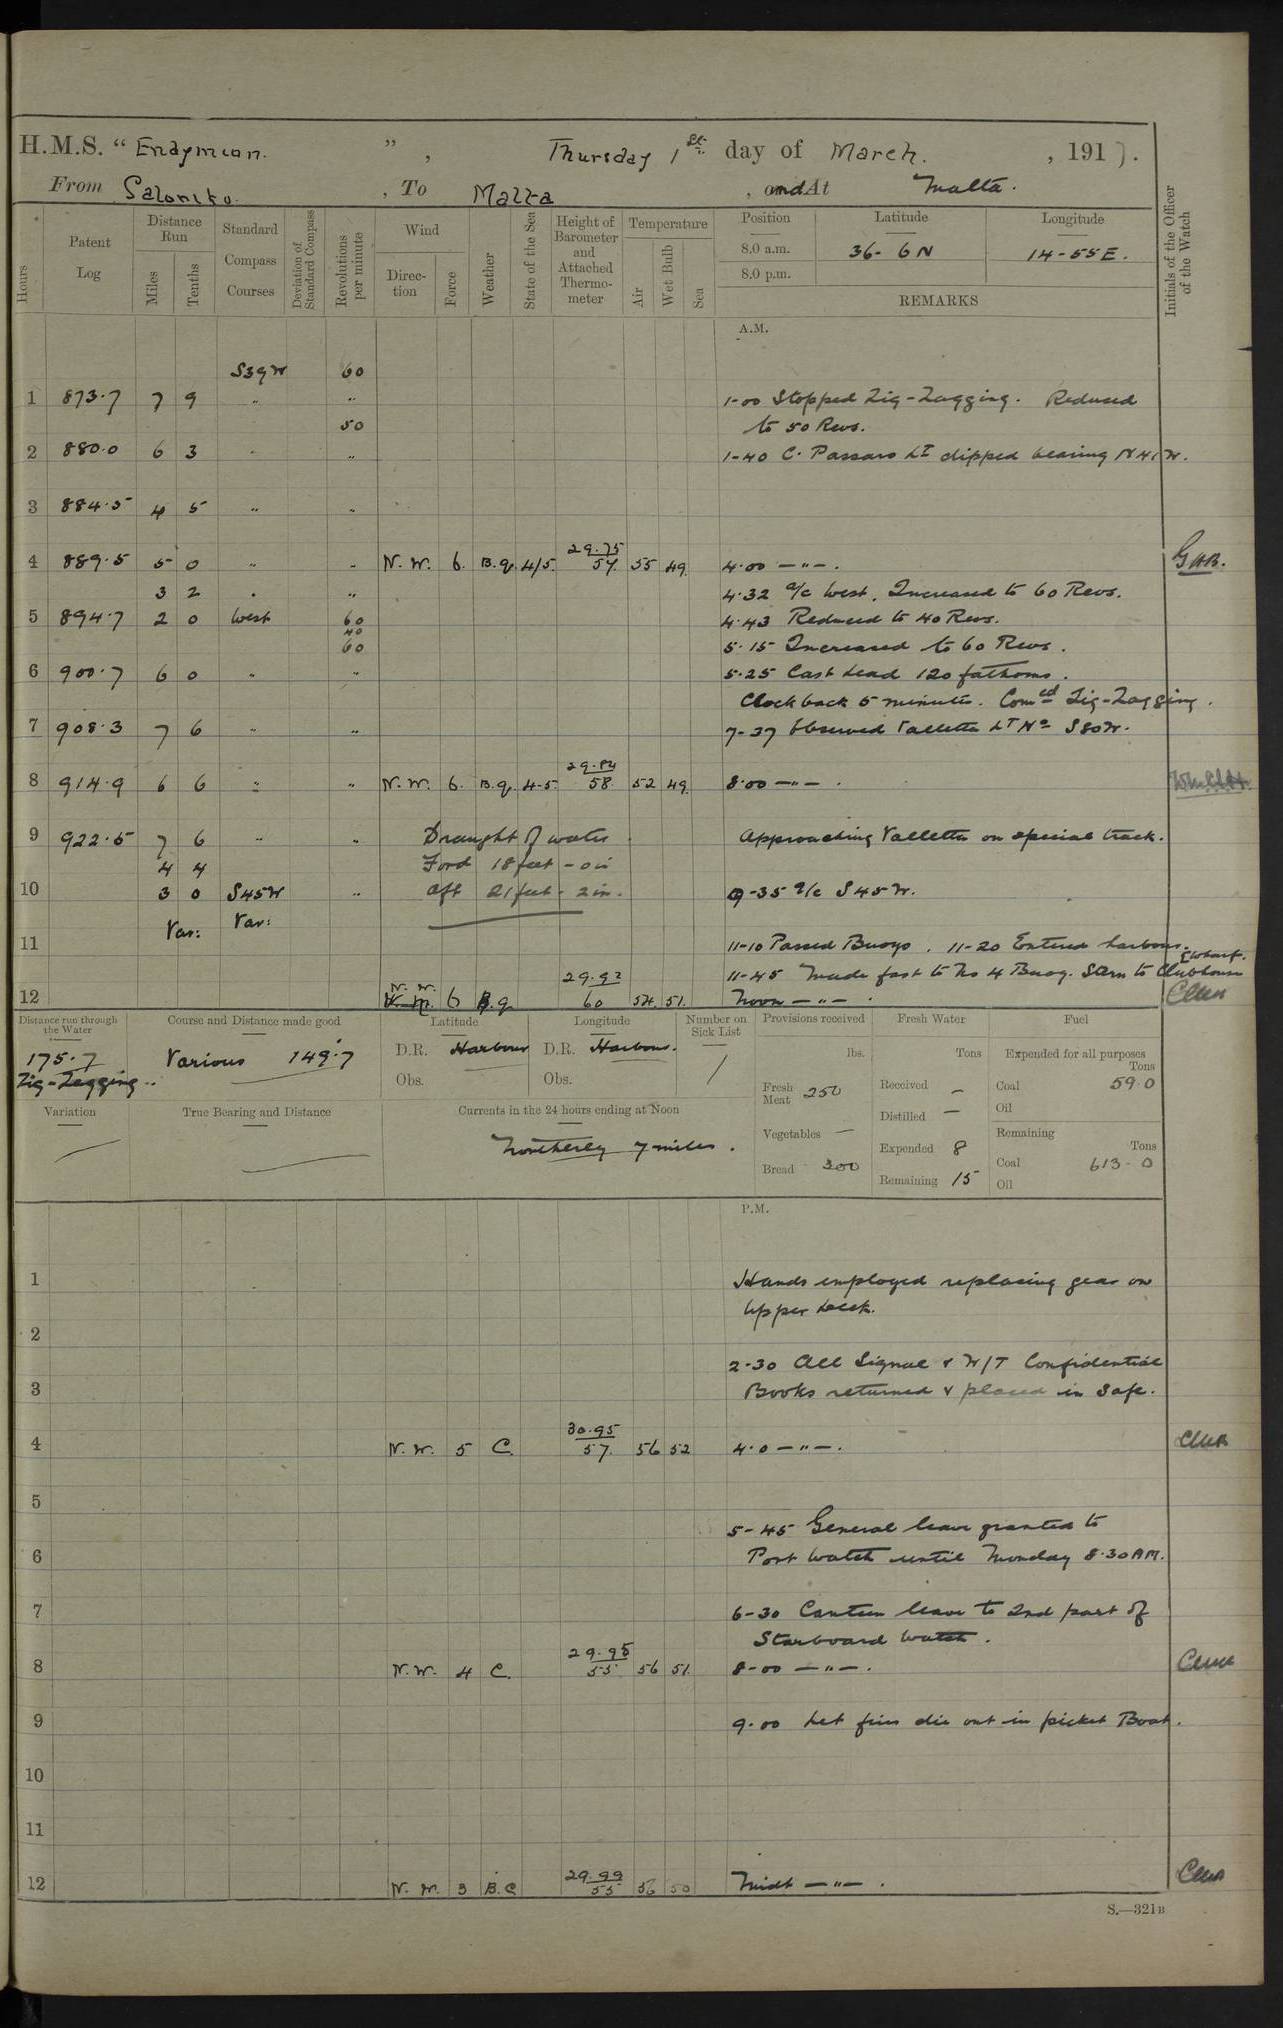 H.M.S. " Endymion. " , Thursday 1st day of March. , 1917.
From Salonika. , To Malta , and At Malta.
Hours
Patent Log
Distance Run
Miles
Tenths
Standard Compass Courses
Deviation of Standard Compass
Revolutions per minute
Wind
Direction
Force
Weather
State of the Sea
Height of Barometer and Attached Thermometer
Temperature
Air
Wet Bulb
Sea
Position
Latitude
Longitude
8.0 a.m. 36-6N 14-55E.
8.0 p.m.
REMARKS
Initials of the Officer of the Watch
A.M.
S39W 60
1 873.7 7 9 " " 1-00 Stopped Zig-Zagging. Reduced
50 to 50 Revs.
2 880.0 6 3 " " 1-40 C. Passaro Lt dipped bearing N41W.
3 884.5 4 5 " "
4 889.5 5 0 " " N.W. 6. B.q. 4/5. 29.75 57. 55 49. 4.00 —"—. GHB.
3 2 " " 4.32 a/c West. Increased to 60 Revs.
5 894.7 2 0 West 60 4.43 Reduced to 40 Revs.
40
60 5.15 Increased to 60 Revs.
6 900.7 6 0 " " 5.25 Cast Lead 120 fathoms.
Clock back 5 minutes. Comced Zig-Zagging.
7 908.3 7 6 " " 7-37 Observed Valletta Lt Ho S80W.
8 914.9 6 6 " " N.W. 6. B.q. 4-5. 29.84 58. 52 49. 8.00 —"—.
9 922.5 7 6 " " Draught of water Approaching Valletta on special track.
4 4 Ford 18 feet - 0 in
10 3 0 S45W " aft 21 feet - 2 in. 9-35 a/c S45W.
Var: Var:
11 11-10 Passed Buoys. 11-20 Entered harbour.
11-45 Made fast to No 4 Buoy. Stern to Clubhouse wharf.
12 N.W. 6 B.q 29.92 60 54. 51. Noon —"—.
Distance run through the Water
175.7
Zig-Zagging..
Course and Distance made good
Various 149.7
Latitude
D.R. Harbour
Obs.
Longitude
D.R. Harbour.
Obs.
Number on Sick List
1
Provisions received
lbs.
Fresh Meat 250
Vegetables —
Bread 300
Fresh Water
Tons
Received —
Distilled —
Expended 8
Remaining 15
Fuel
Expended for all purposes
Tons
Coal 59.0
Oil
Remaining
Tons
Coal 613.0
Oil
Variation
True Bearing and Distance
Currents in the 24 hours ending at Noon
Northerly 7 miles.
P.M.
1 Hands employed replacing gear on
Upper Deck.
2
2-30 All Signal & W/T Confidential
3 Books returned & placed in Safe.
4 N.W. 5 C. 30.95 57. 56 52 4.0 —"—.
5
5-45 General leave granted to
6 Port Watch until Monday 8.30 AM.
7 6-30 Canteen leave to 2nd part of
Starboard Watch.
8 N.W. 4 C. 29.95 55. 56 51. 8-00 —"—.
9 9.00 Let fires die out in picket Boat.
10
11
12 N.W. 3 B.C 29.99 55 56 50 Midt —"—.
S.—321B